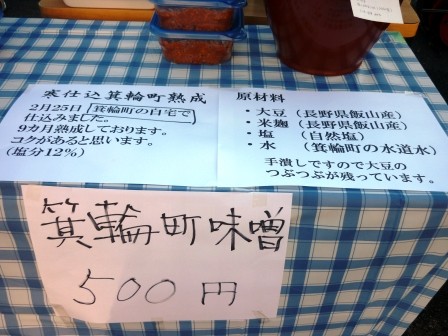 寒仕込箕輪町熟成
2月25日箕輪町の自宅で
仕込みました。
9カ月熟成しております。
コクがあると思います。
(塩分12%)
原材料
・大豆(長野県飯山産)
・米麹(長野県飯山産)
・塩(自然塩)
・水(箕輪町の水道水)
手潰しですので大豆の
つぶつぶが残っています。
箕輪町味噌
500円